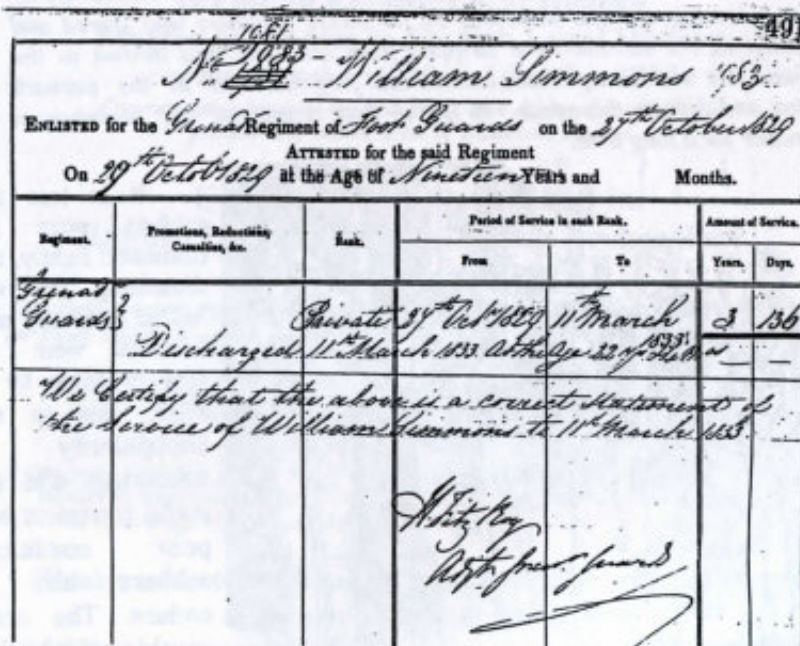 491
1081
No 1883 - William Simmons 483
ENLISTED for the Grenad Regiment of Foot Guards on the 27th October 1829
ATTESTED for the said Regiment
On 29th Octob 1829 at the Age of Nineteen Years and Months.
Regiment, Promotions, Reductions, Casualties, &c. Rank. Period of Service in each Rank. Amount of Service.
From To Years. Days.
Grenad
Guards Private 27th Oct 1829 11th March 1833 3 136
Discharged 11th March 1833 At the Age 22 — —
We Certify that the above is a correct Statement of
the Service of William Simmons to 11th March 1833
Fitz Roy
Adjt Guards